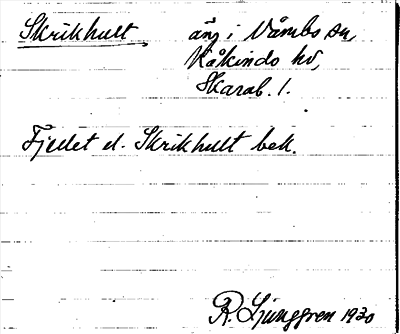 Skrikhult äng i Våmbs sn,
Kåkinds hd,
Skarab. l.
Fjället el. Skrikhult bek.
R. Ljunggren 1930